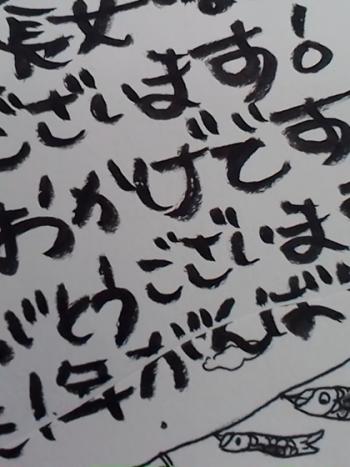 長女
ございます!
おかげです
がとうございま
年がんば